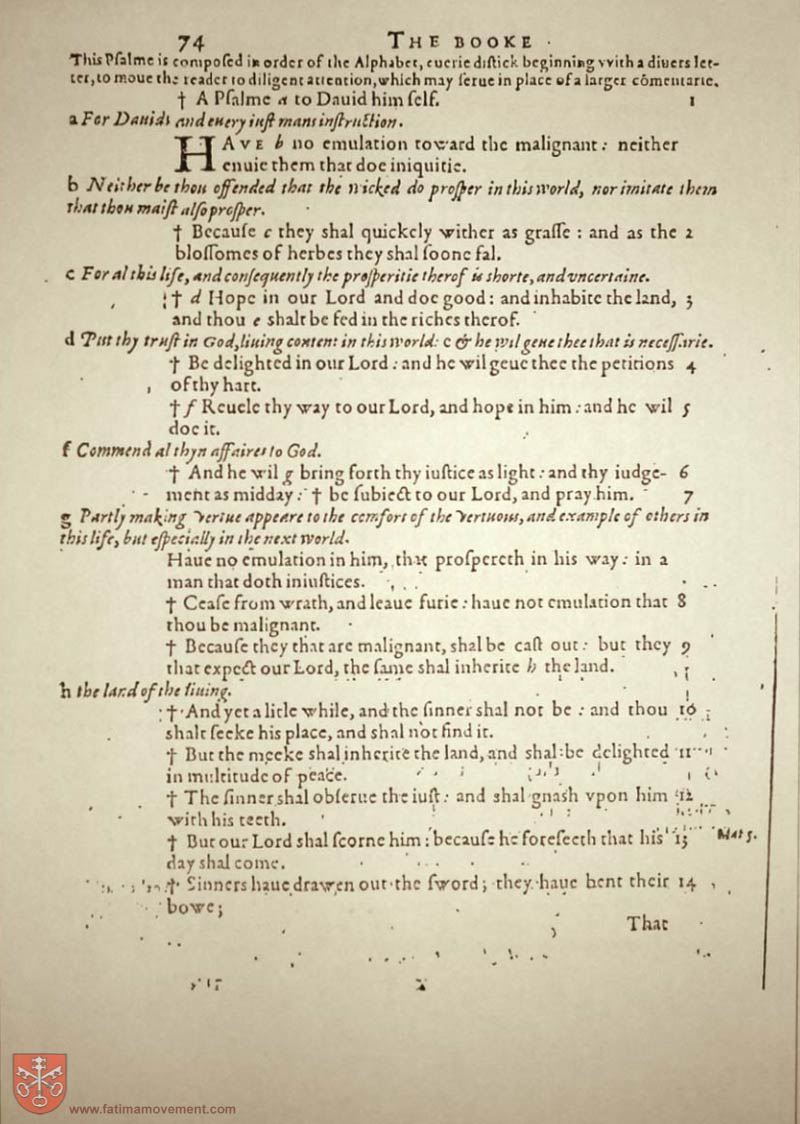 74 THE BOOKE
This Pſalme is compoſed in order of the Alphabet, euerie diſtick beginning vvith a diuers let-
ter, to moue the reader to diligent attention, which may ſerue in place of a larger cōmentarie.
† A Pſalme a to Dauid him ſelf. 1
a For Dauids and euery iuſt mans inſtruction.
HAVE b no emulation toward the malignant: neither
enuie them that doe iniquitie.
b Neither be thou offended that the wicked do proſper in this world, nor imitate them
that thou maiſt alſo proſper.
† Becauſe c they shal quickely wither as graſſe : and as the 2
bloſſomes of herbes they shal ſoone fal.
c For al this life, and conſequently the proſperitie therof is shorte, and vncertaine.
† d Hope in our Lord and doe good: and inhabite the land, 3
and thou e shalt be fed in the riches therof.
d Put thy truſt in God, liuing content in this world: e & he wil geue thee that is neceſſarie.
† Be delighted in our Lord : and he wil geue thee the petitions 4
of thy hart.
† f Reuele thy way to our Lord, and hope in him : and he wil 5
doe it.
f Commend al thyn affaires to God.
† And he wil g bring forth thy iuſtice as light : and thy iudge- 6
ment as midday : † be ſubiect to our Lord, and pray him. 7
g Partly making vertue appeare to the comfort of the vertuous, and example of others in
this life, but eſpecially in the next world.
Haue no emulation in him, that proſpereth in his way : in a
man that doth iniuſtices.
† Ceaſe from wrath, and leaue furie : haue not emulation that 8
thou be malignant.
† Becauſe they that are malignant, shal be caſt out : but they 9
that expect our Lord, the ſame shal inherite h the land.
h the land of the liuing.
† And yet a litle while, and the ſinner shal not be : and thou 10
shalt ſeeke his place, and shal not find it.
† But the meeke shal inherite the land, and shal be delighted 11
in multitude of peace.
† The ſinner shal obſerue the iuſt : and shal gnash vpon him 12
with his teeth.
† But our Lord shal ſcorne him : becauſe he foreſeeth that his 13 Mat 5.
day shal come.
† Sinners haue drawen out the ſword ; they haue bent their 14
bowe ;
That
www.fatimamovement.com